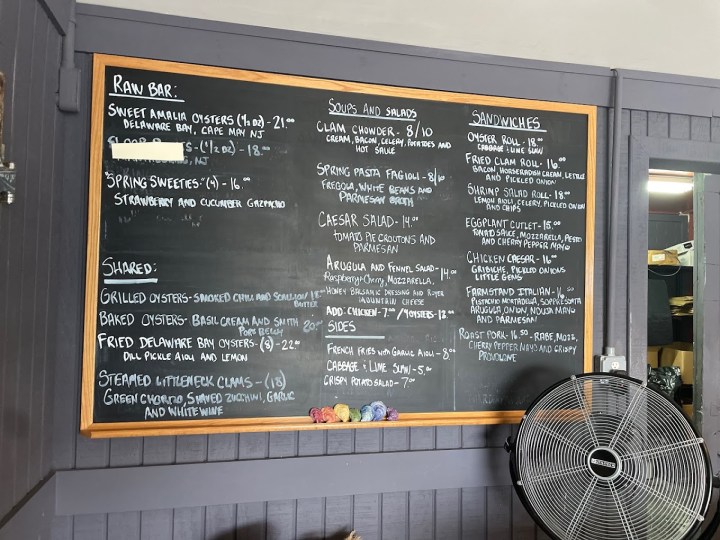 RAW BAR:
SWEET AMALIA OYSTERS (½ DZ) - 21.00
DELAWARE BAY, CAPE MAY NJ
(½ DZ) - 18.00
, NJ
"SPRING SWEETIES" (4) - 16.00
STRAWBERRY AND CUCUMBER GAZPACHO
SHARED:
GRILLED OYSTERS - SMOKED CHILI AND SCALLION BUTTER 18.00
BAKED OYSTERS - BASIL CREAM AND SMITH
PORK BELLY 20.00
FRIED DELAWARE BAY OYSTERS - (8) - 22.00
DILL PICKLE AIOLI AND LEMON
STEAMED LITTLENECK CLAMS - (18)
GREEN CHORIZO, SHAVED ZUCCHINI, GARLIC
AND WHITE WINE
SOUPS AND SALADS
CLAM CHOWDER - 8/10
CREAM, BACON, CELERY, POTATOES AND
HOT SAUCE
SPRING PASTA FAGIOLI - 8/10
FREGOLA, WHITE BEANS AND
PARMESAN BROTH
CAESAR SALAD - 14.00
TOMATO PIE CROUTONS AND
PARMESAN
ARUGULA AND FENNEL SALAD - 14.00
Raspberry + Cherry, MOZZARELLA,
HONEY BALSAMIC DRESSING AND
MOUNTAIN CHEESE
ADD: CHICKEN - 7.00 / 4 OYSTERS - 12.00
SIDES
FRENCH FRIES WITH GARLIC AIOLI - 8.00
CABBAGE & LIME SLAW - 5.00
CRISPY POTATO SALAD - 7.00
SANDWICHES
OYSTER ROLL - 18.00
CABBAGE & LIME SLAW
FRIED CLAM ROLL - 16.00
BACON, HORSERADISH CREAM, LETTUCE
AND PICKLED ONION
SHRIMP SALAD ROLL - 18.00
LEMON AIOLI, CELERY, PICKLED ONION
AND CHIPS
EGGPLANT CUTLET - 15.00
TOMATO SAUCE, MOZZARELLA, PESTO
AND CHERRY PEPPER MAYO
CHICKEN CAESAR - 16.00
GRIBICHE, PICKLED ONIONS
LITTLE GEMS
FARMSTAND ITALIAN -
PISTACHIO MORTADELLA, SOPPRESSATA
ARUGULA, ONION, NDUJA MAYO
AND PARMESAN
ROAST PORK - 16.50 - RABE, MOZZ,
CHERRY PEPPER MAYO AND CRISPY
PROVOLONE